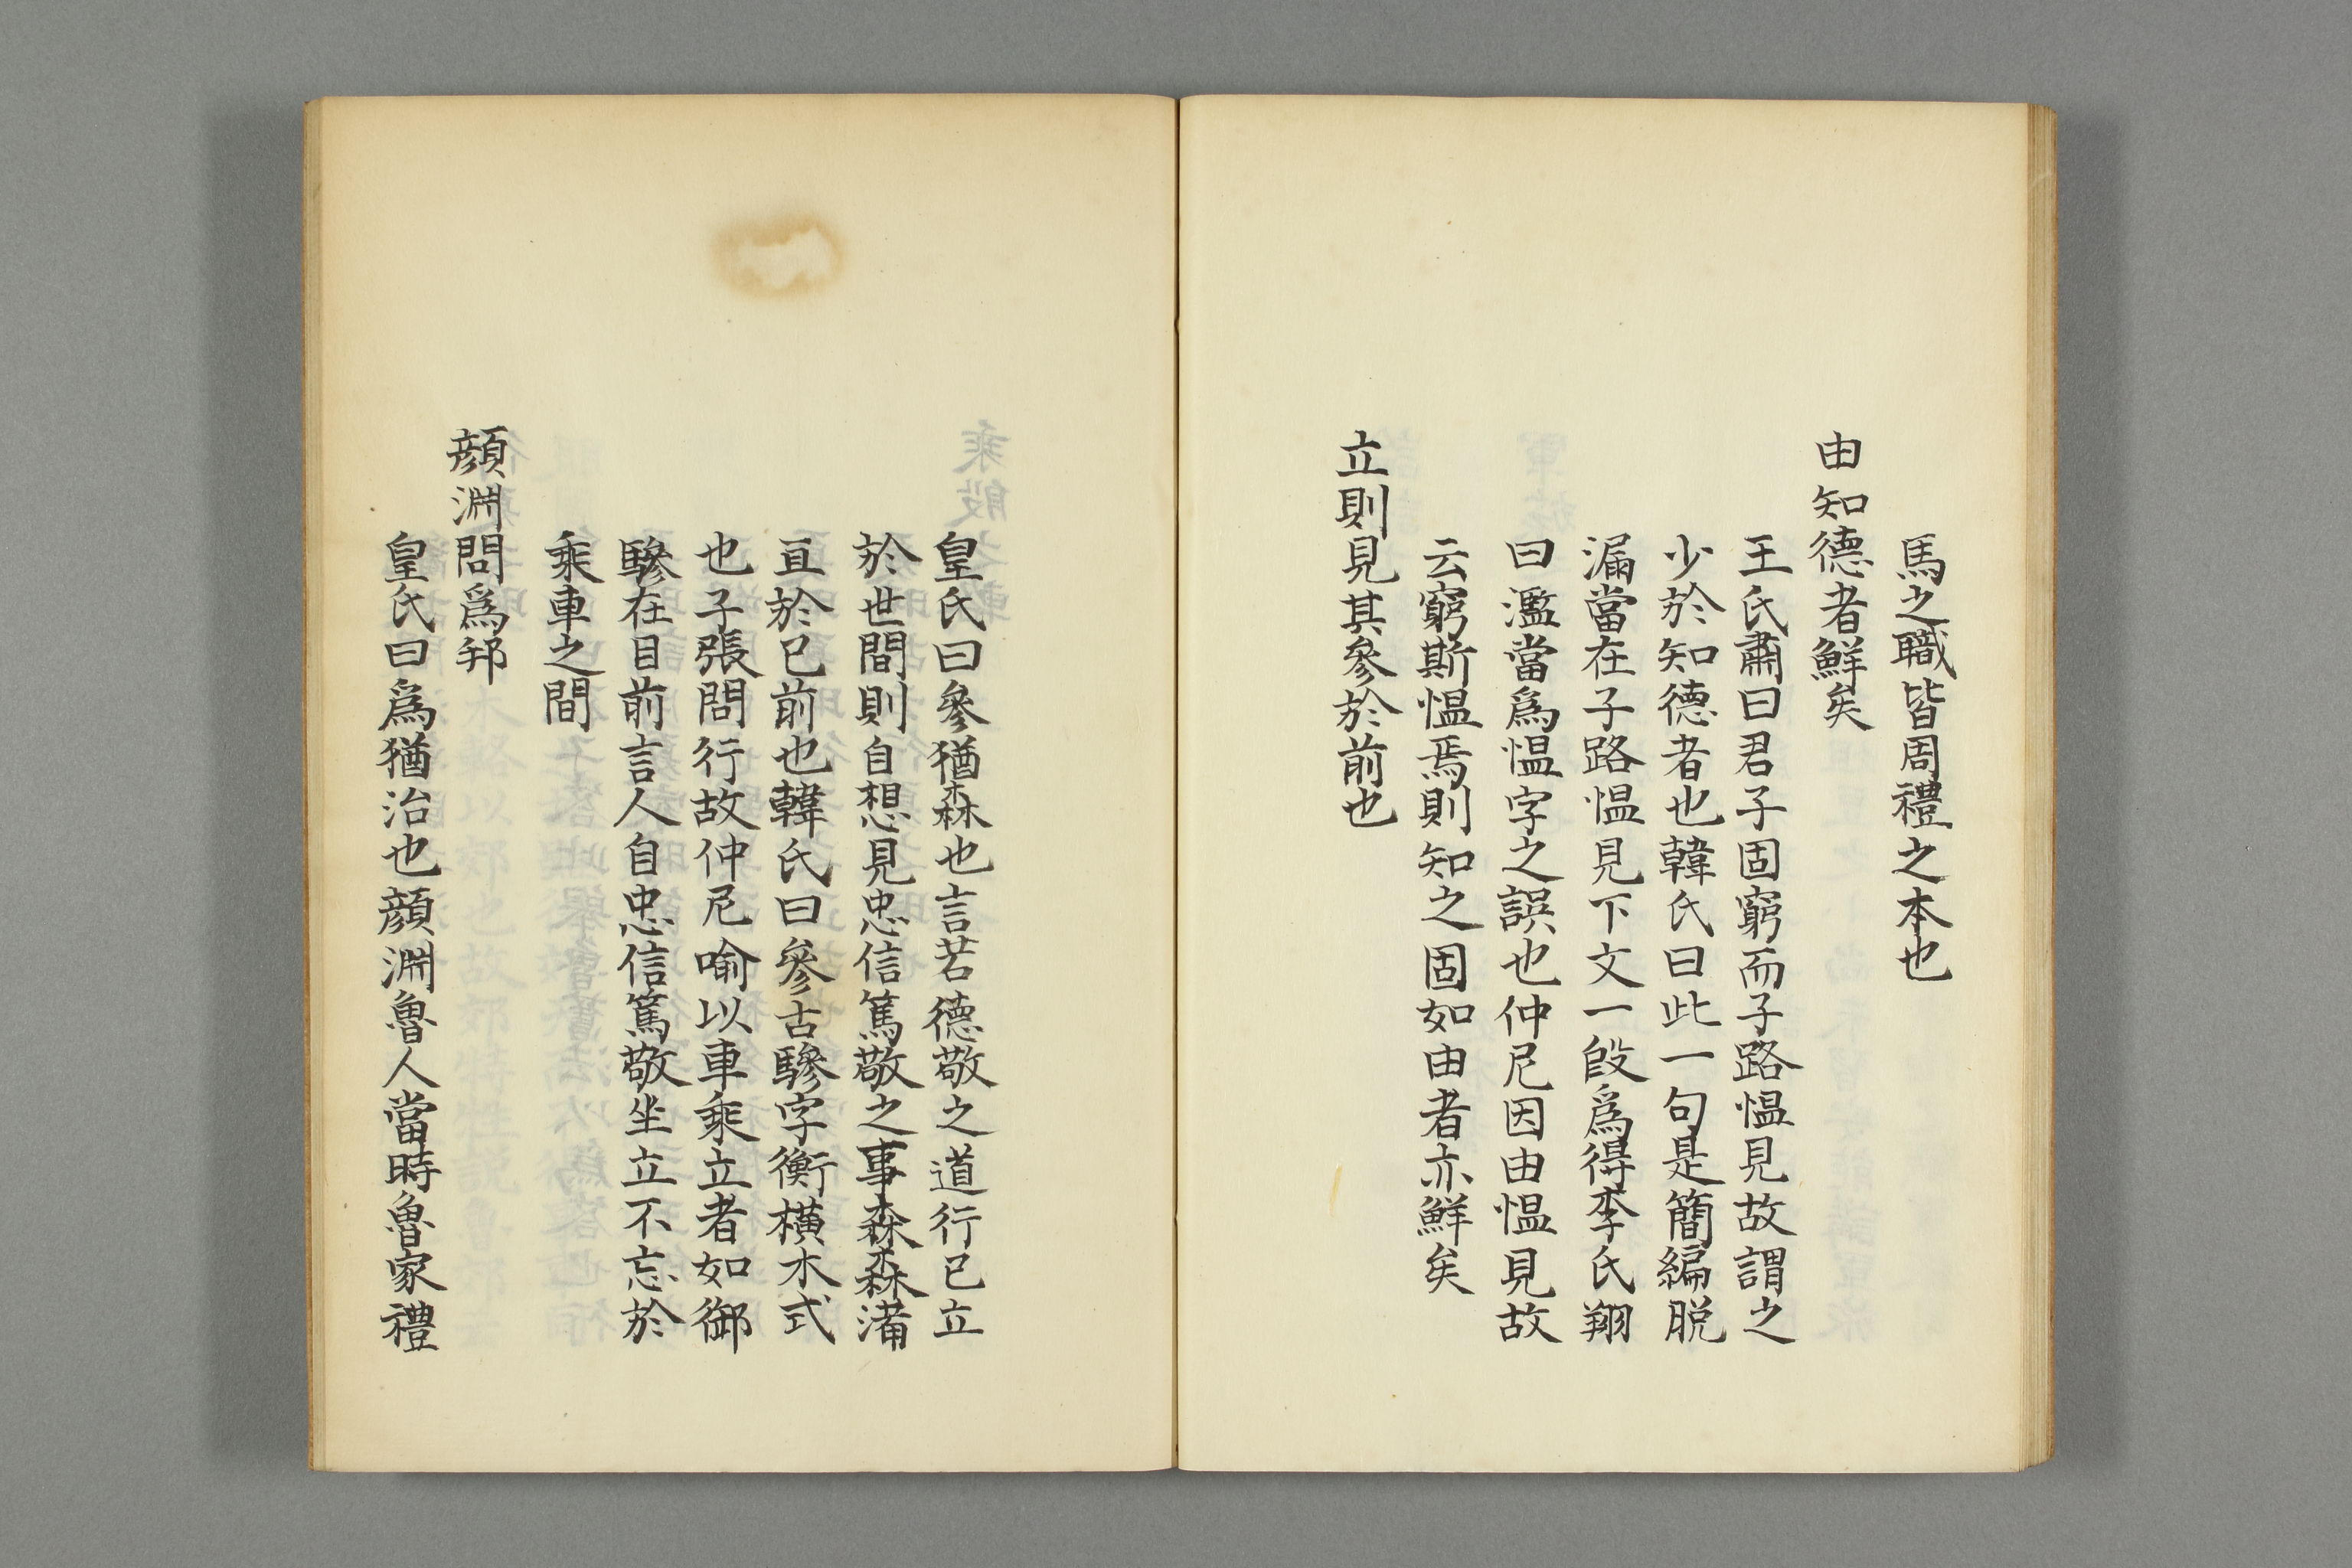 馬之職皆周禮之本也
由知德者鮮矣
王氏肅曰君子固窮而子路愠見故謂之
少於知德者也韓氏曰此一句是簡編脱
漏當在子路愠見下文一段爲得李氏翔
曰濫當爲愠字之誤也仲尼因由愠見故
云窮斯愠焉則知之固如由者亦鮮矣
立則見其參於前也
皇氏曰參猶森也言若德敬之道行已立
於世間則自想見忠信篤敬之事森森滿
亘於已前也韓氏曰參古驂字衡橫木式
也子張問行故仲尼喻以車乘立者如御
驂在目前言人自忠信篤敬坐立不忘於
乘車之間
顔淵問爲邦
皇氏曰爲猶治也顔淵魯人當時魯家禮